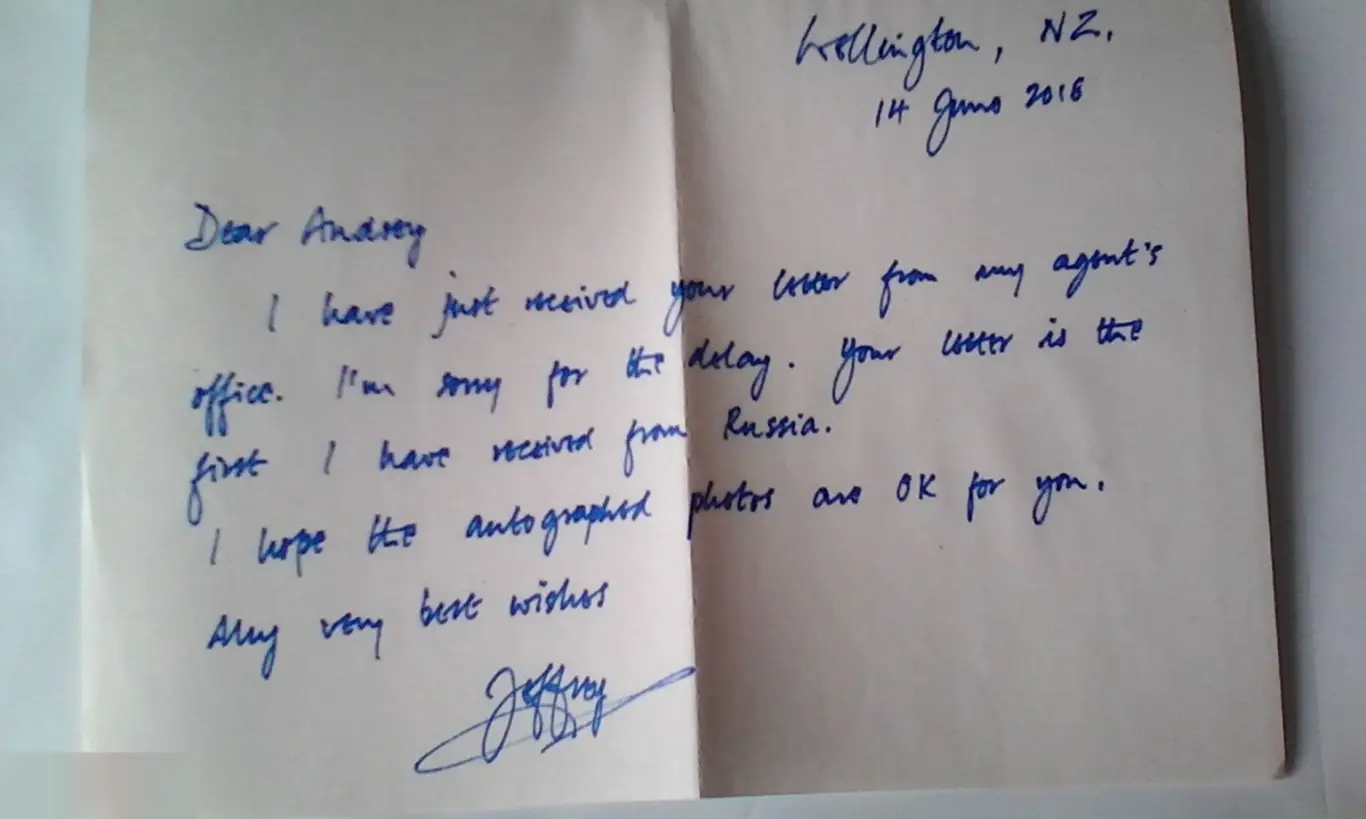 Wellington, NZ.
14 June 2016
Dear Andrey
I have just received your letter from my agent's
office. I'm sorry for the delay. Your letter is the
first I have received from Russia.
I hope the autographed photos are OK for you.
My very best wishes
Jeffrey